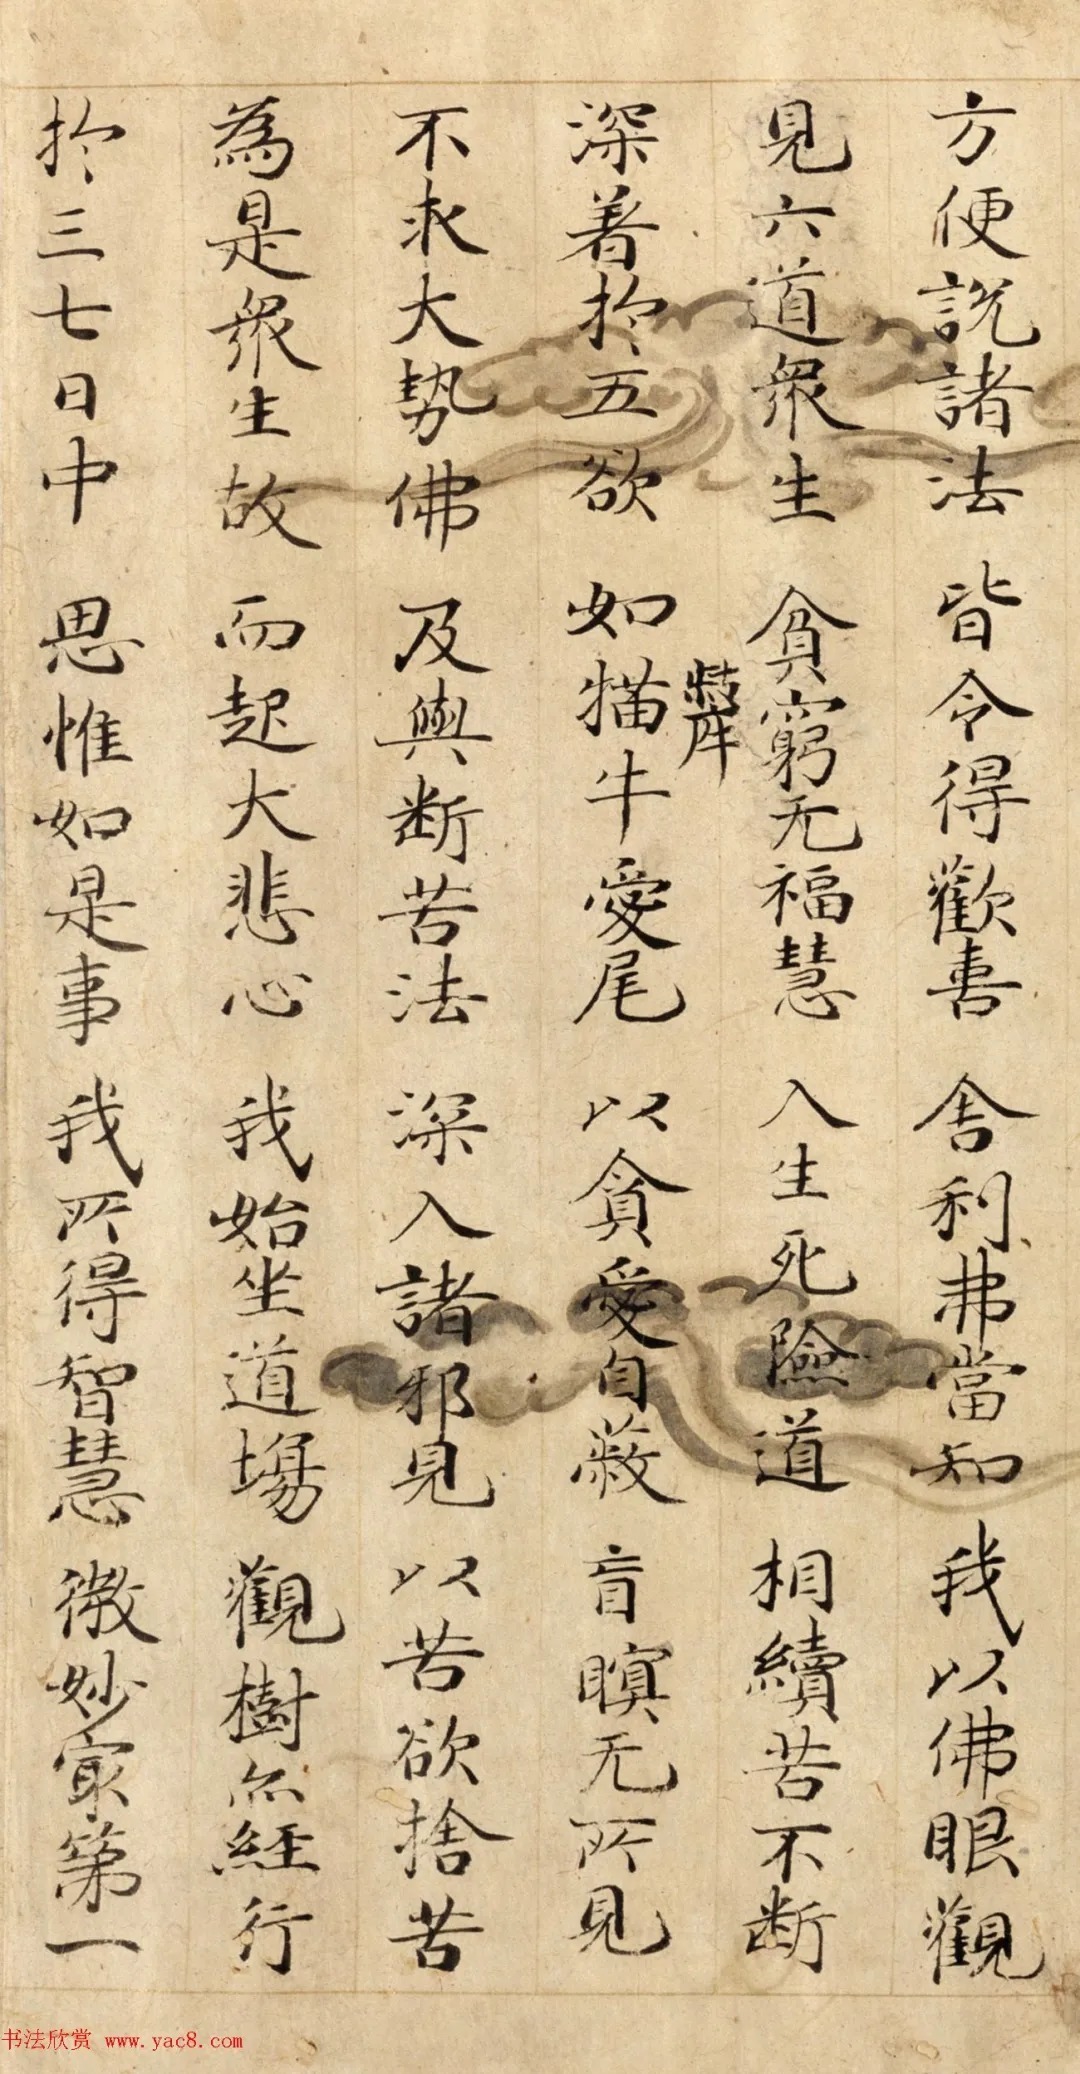 方便說諸法 皆令得歡喜 舍利弗當知 我以佛眼觀
見六道衆生 貧窮无福慧 入生死險道 相續苦不断
深著於五欲 如猫牛愛尾 以貪愛自蔽 盲瞑无所見
不求大勢佛 及與断苦法 深入諸邪見 以苦欲捨苦
為是衆生故 而起大悲心 我始坐道場 觀樹亦經行
於三七日中 思惟如是事 我所得智慧 微妙冣第一
书法欣赏 www.yac8.com